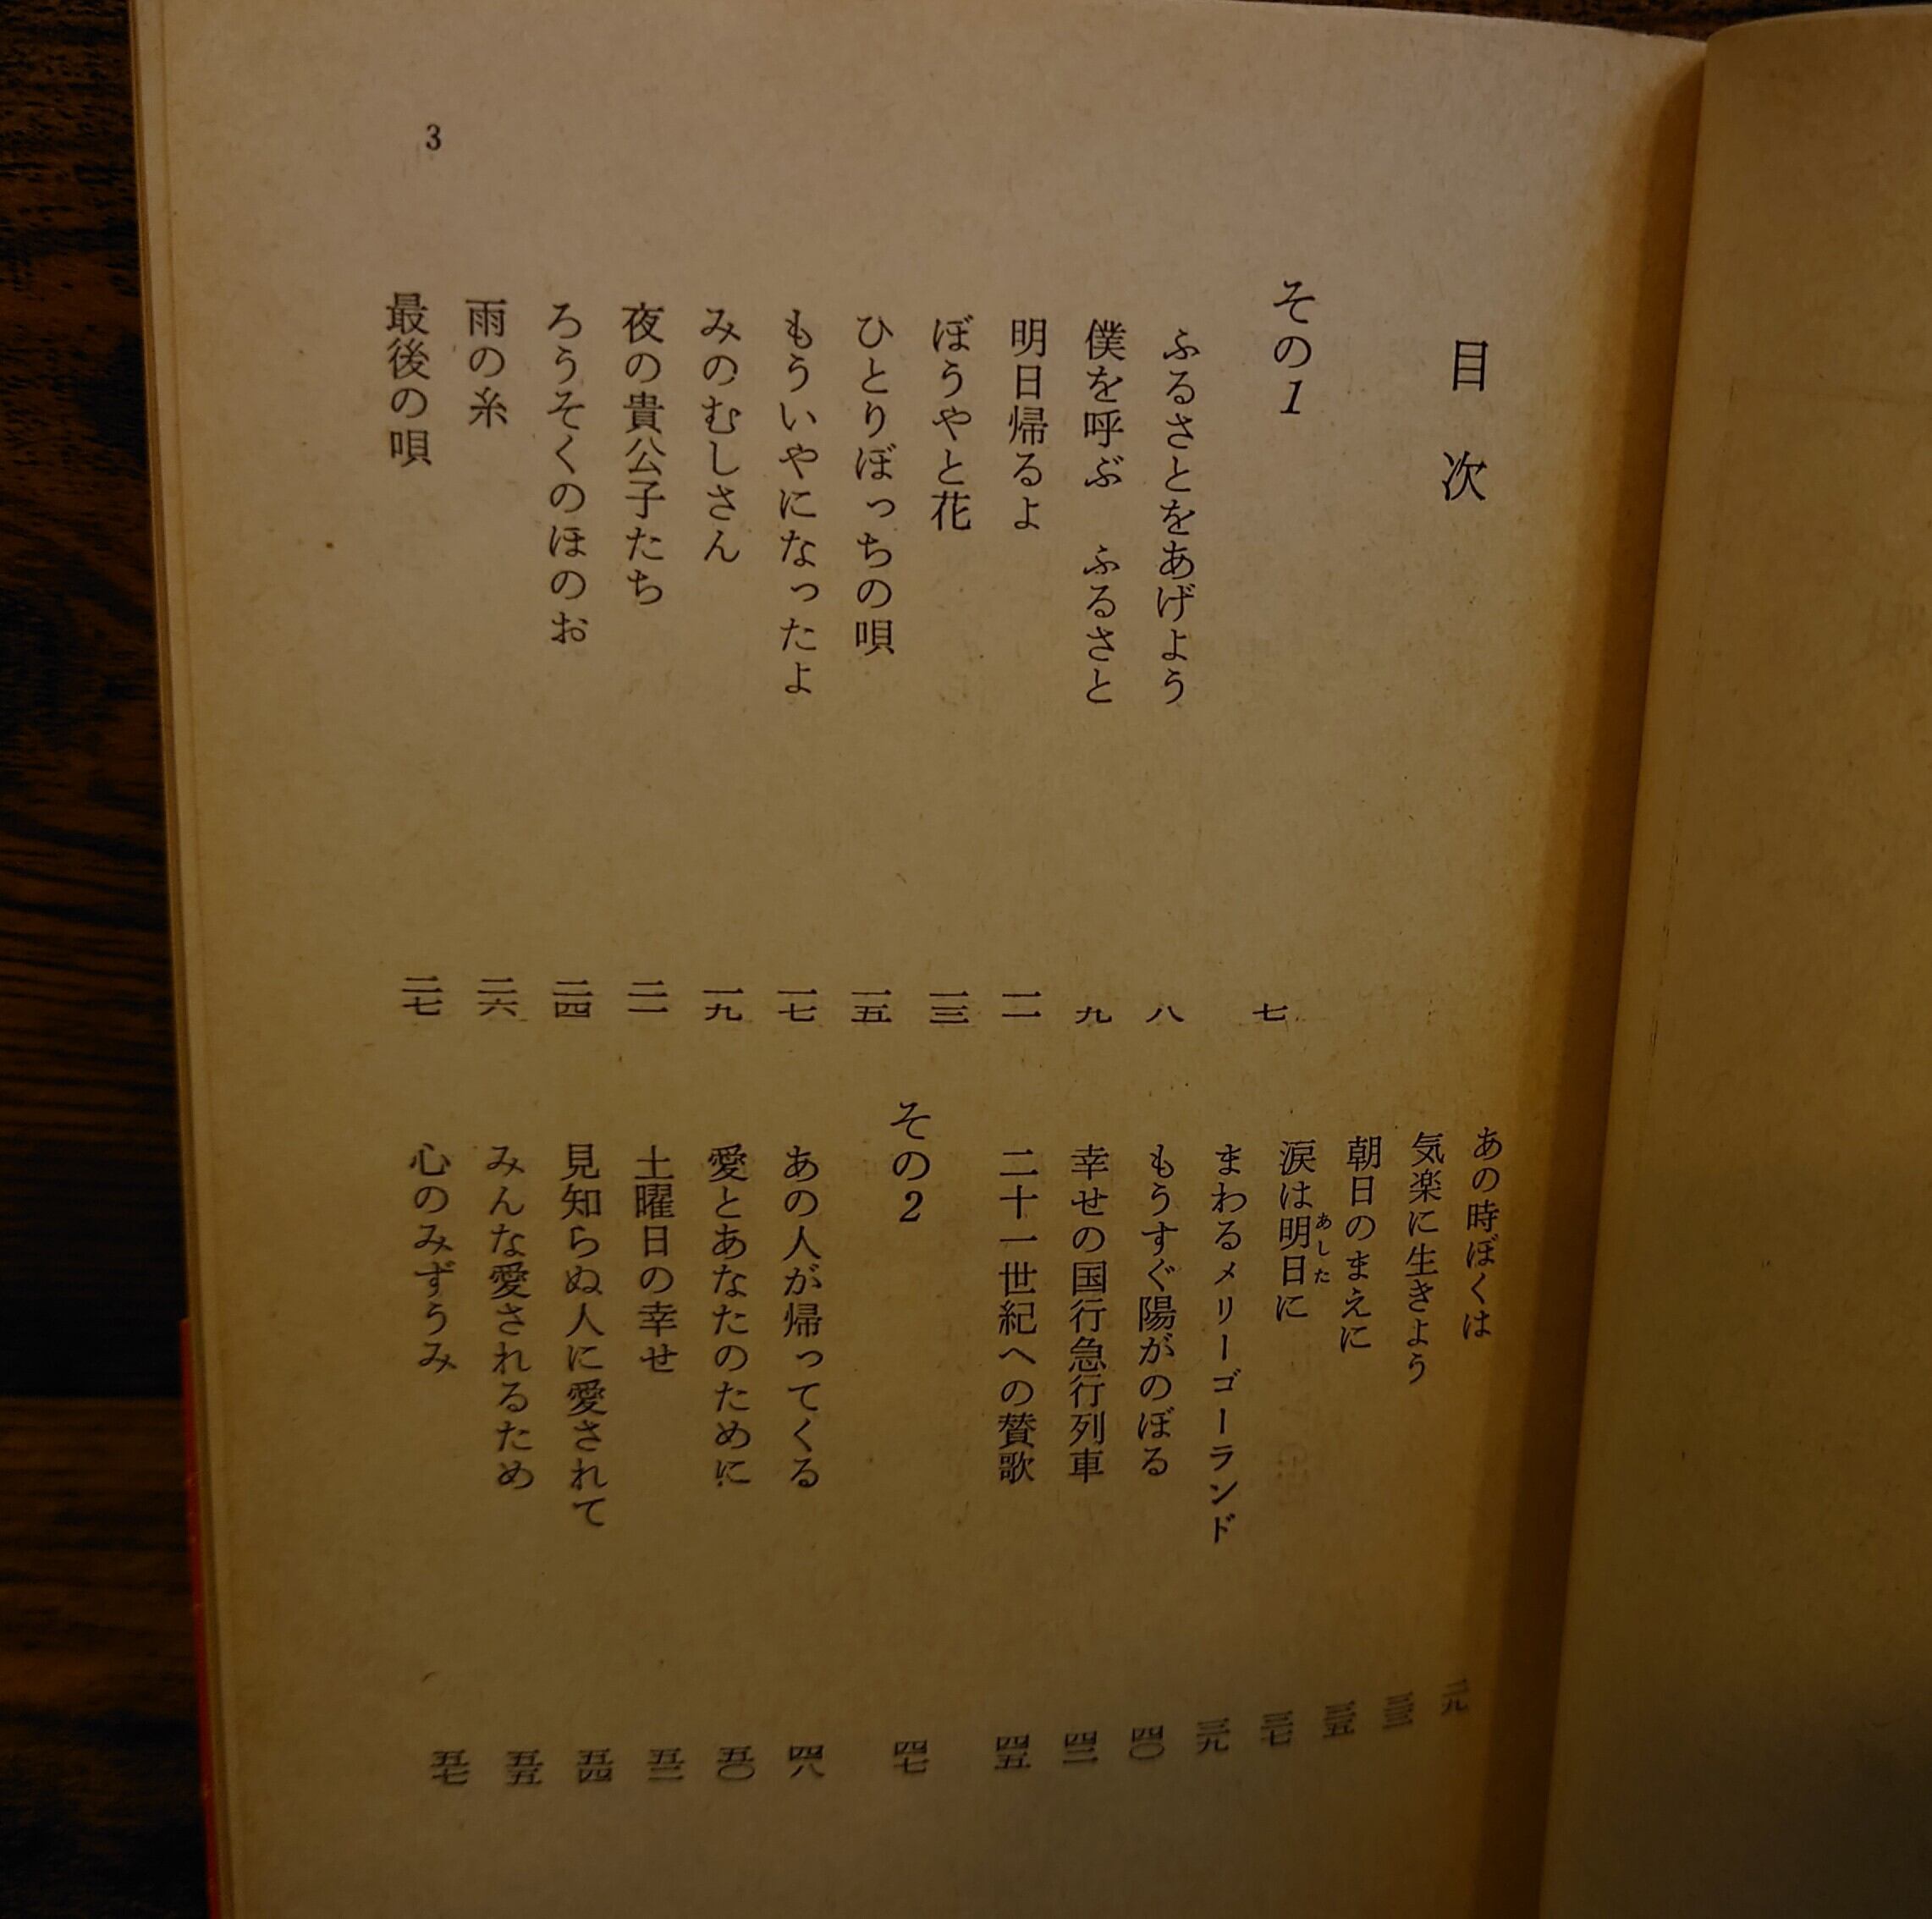 3
目次
その1 七
ふるさとをあげよう 八
僕を呼ぶ　ふるさと 九
明日帰るよ 一一
ぼうやと花 一三
ひとりぼっちの唄 一五
もういやになったよ 一七
みのむしさん 一九
夜の貴公子たち 二一
ろうそくのほのお 二四
雨の糸 二六
最後の唄 二七
あの時ぼくは 二九
気楽に生きよう 三三
朝日のまえに 三五
涙は明日あしたに 三七
まわるメリーゴーランド 三九
もうすぐ陽がのぼる 四〇
幸せの国行急行列車 四二
二十一世紀への賛歌 四五
その2 四七
あの人が帰ってくる 四八
愛とあなたのために 五〇
土曜日の幸せ 五二
見知らぬ人に愛されて 五四
みんな愛されるため 五五
心のみずうみ 五七